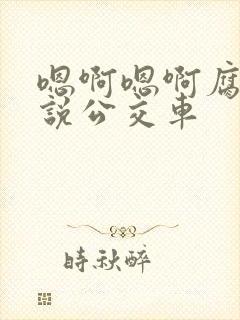 嗯啊嗯啊腐
説公交車
時秋醉